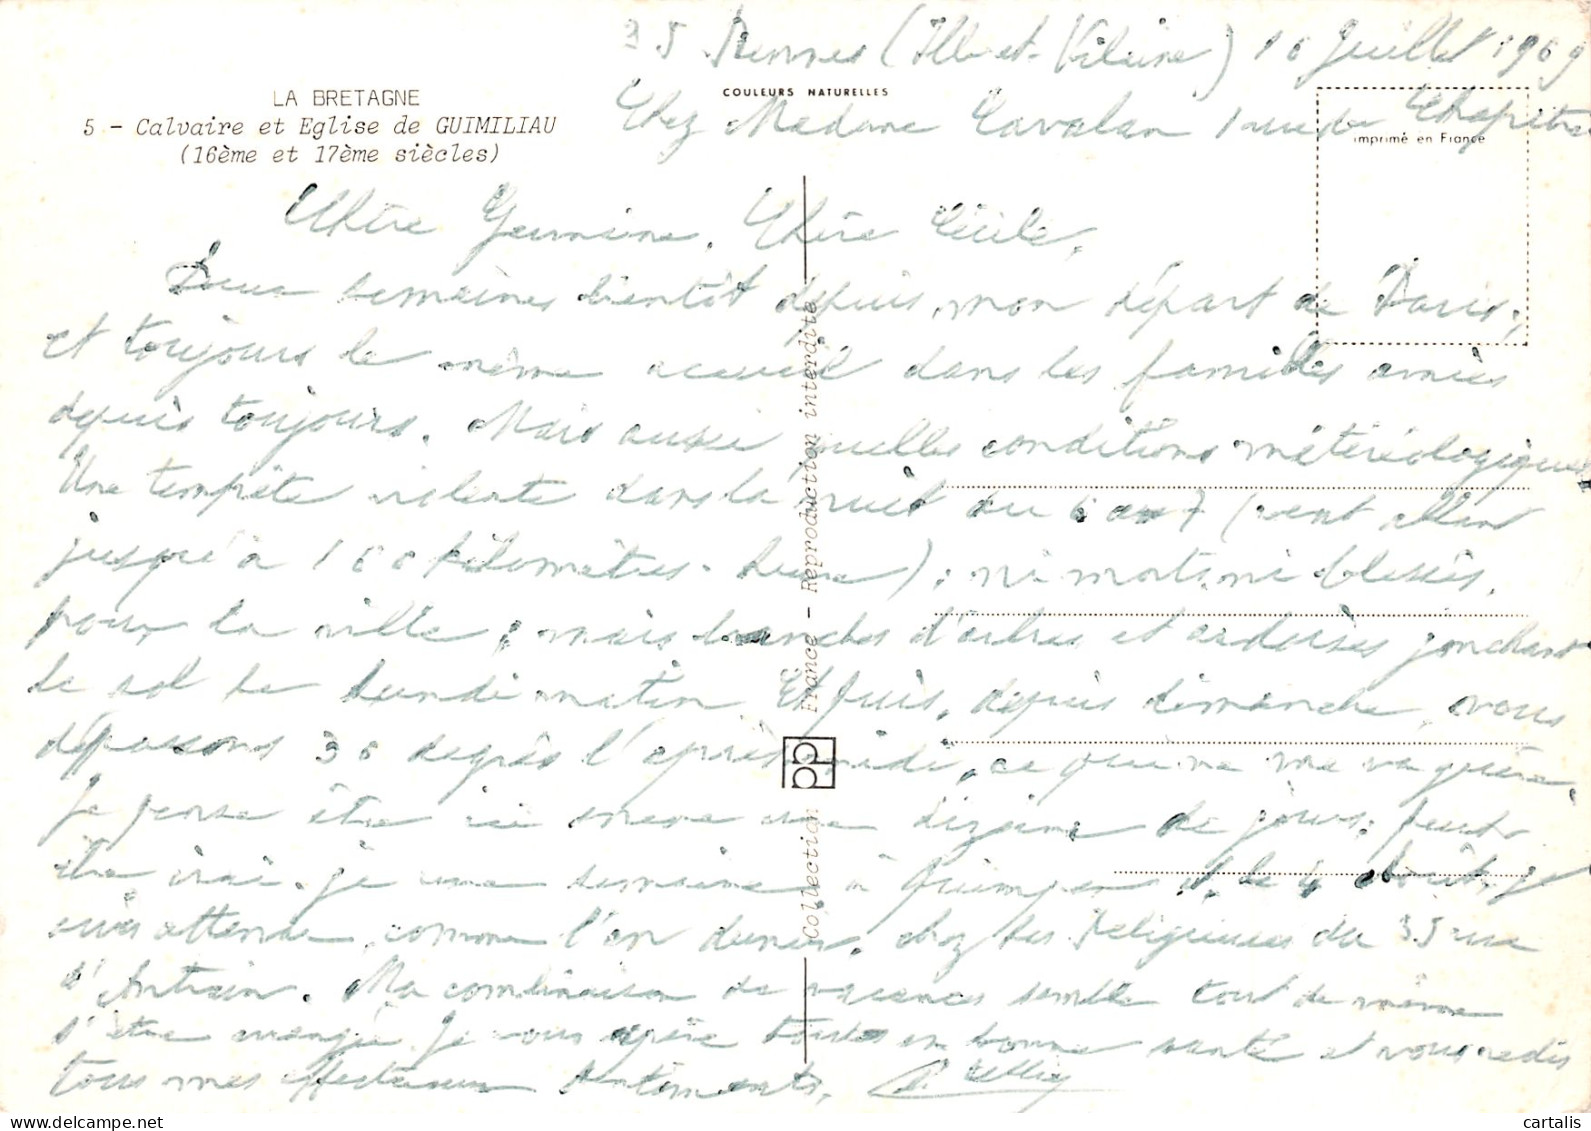 35 Rennes (Ille-et-Vilaine) 16 Juillet 1969
LA BRETAGNE
COULEURS NATURELLES
5 - Calvaire et Eglise de GUIMILIAU
Chez Madame Cavalan 1 rue du Chapitre
imprimé en France
(16ème et 17ème siècles)
Chère Germaine, Chère Cécile,
semaines bientôt depuis mon départ de Paris,
et toujours le même accueil dans les familles amies
depuis toujours. Mais aussi quelles conditions météréologiques
Une tempête violente dans la nuit du 6 au 7 (vent allant
jusqu'à kilomètres-heure), ni morts ni blessés,
pour la ville, mais branches d'arbres et ardoises jonchant
le sol le lundi matin Et puis, depuis dimanche, nous
dépassons 30 degrés l'après midi, ce qui ne me va guère.
Je pense être ici encore une dizaine de jours. Peut
être irai-je une semaine à Quimper et le 4 Août, je
suis attendue, comme l'an dernier, chez les Religieuses du 35 rue
d'Antrain. Ma combinaison de vacances semble tout de même
s'être arrangée. Je vous espère toutes en bonne santé et vous redis
tous mes affectueux sentiments.
Collection France - Reproduction interdite